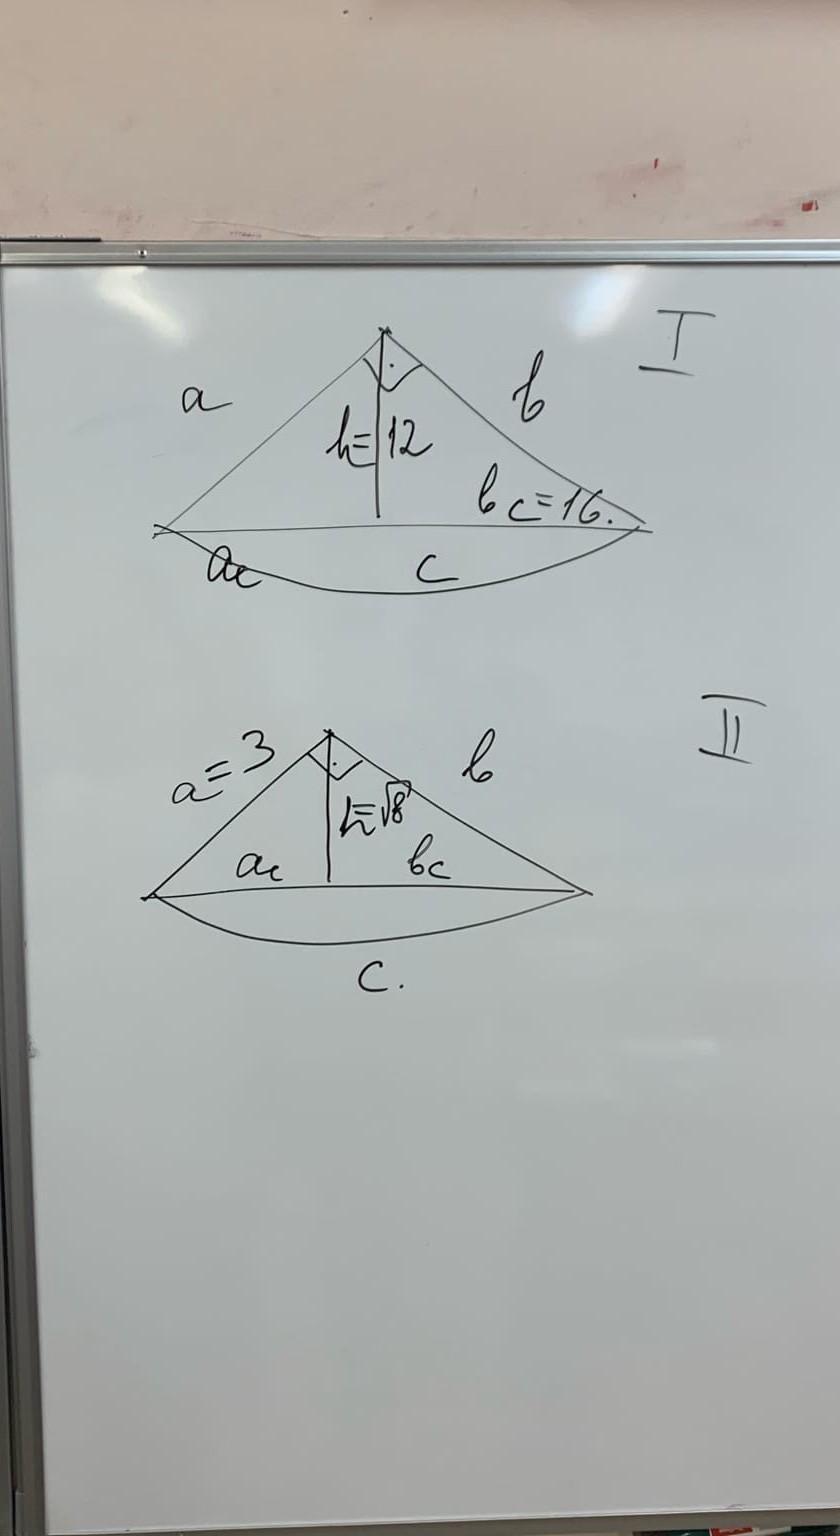 I
a
b
h=12
bc=16.
ac
c
II
a=3
b
h=√8
ac
bc
c.